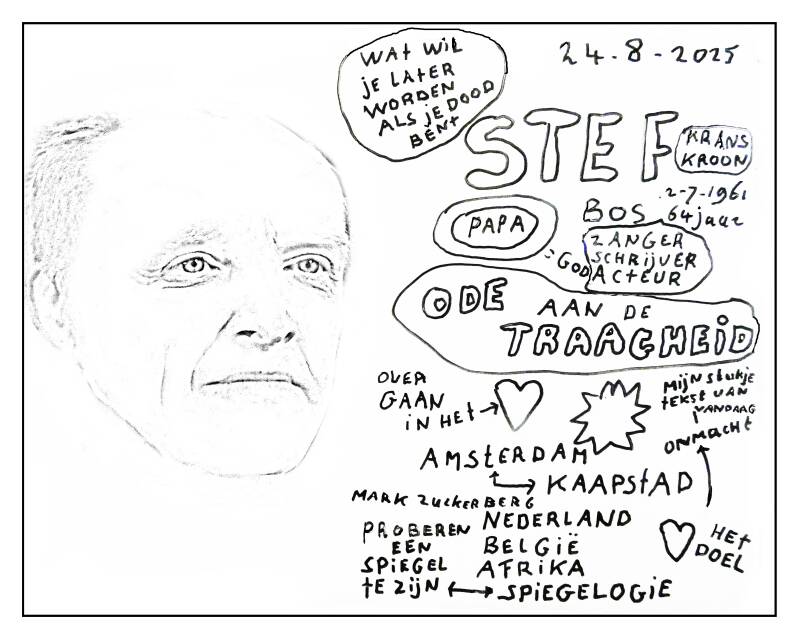 WAT WIL
JE LATER
WORDEN
ALS JE DOOD
BENT
24-8-2025
STEF
KRANS
KROON
2-7-1961
BOS 64 jaar
PAPA
ZANGER
SCHRIJVER
=GOD ACTEUR
ODE AAN DE
TRAAGHEID
OVER
GAAN
IN HET →
MIJN stukje
tEKSt VAN
VANDAAG
ONMACHT
AMSTERDAM
KAAPSTAD
MARK ZUCKERBERG
PROBEREN
EEN
SPIEGEL
TE ZIJN
NEDERLAND
BELGIË
AFRIKA
↔ SPIEGELOGIE
HET
DOEL